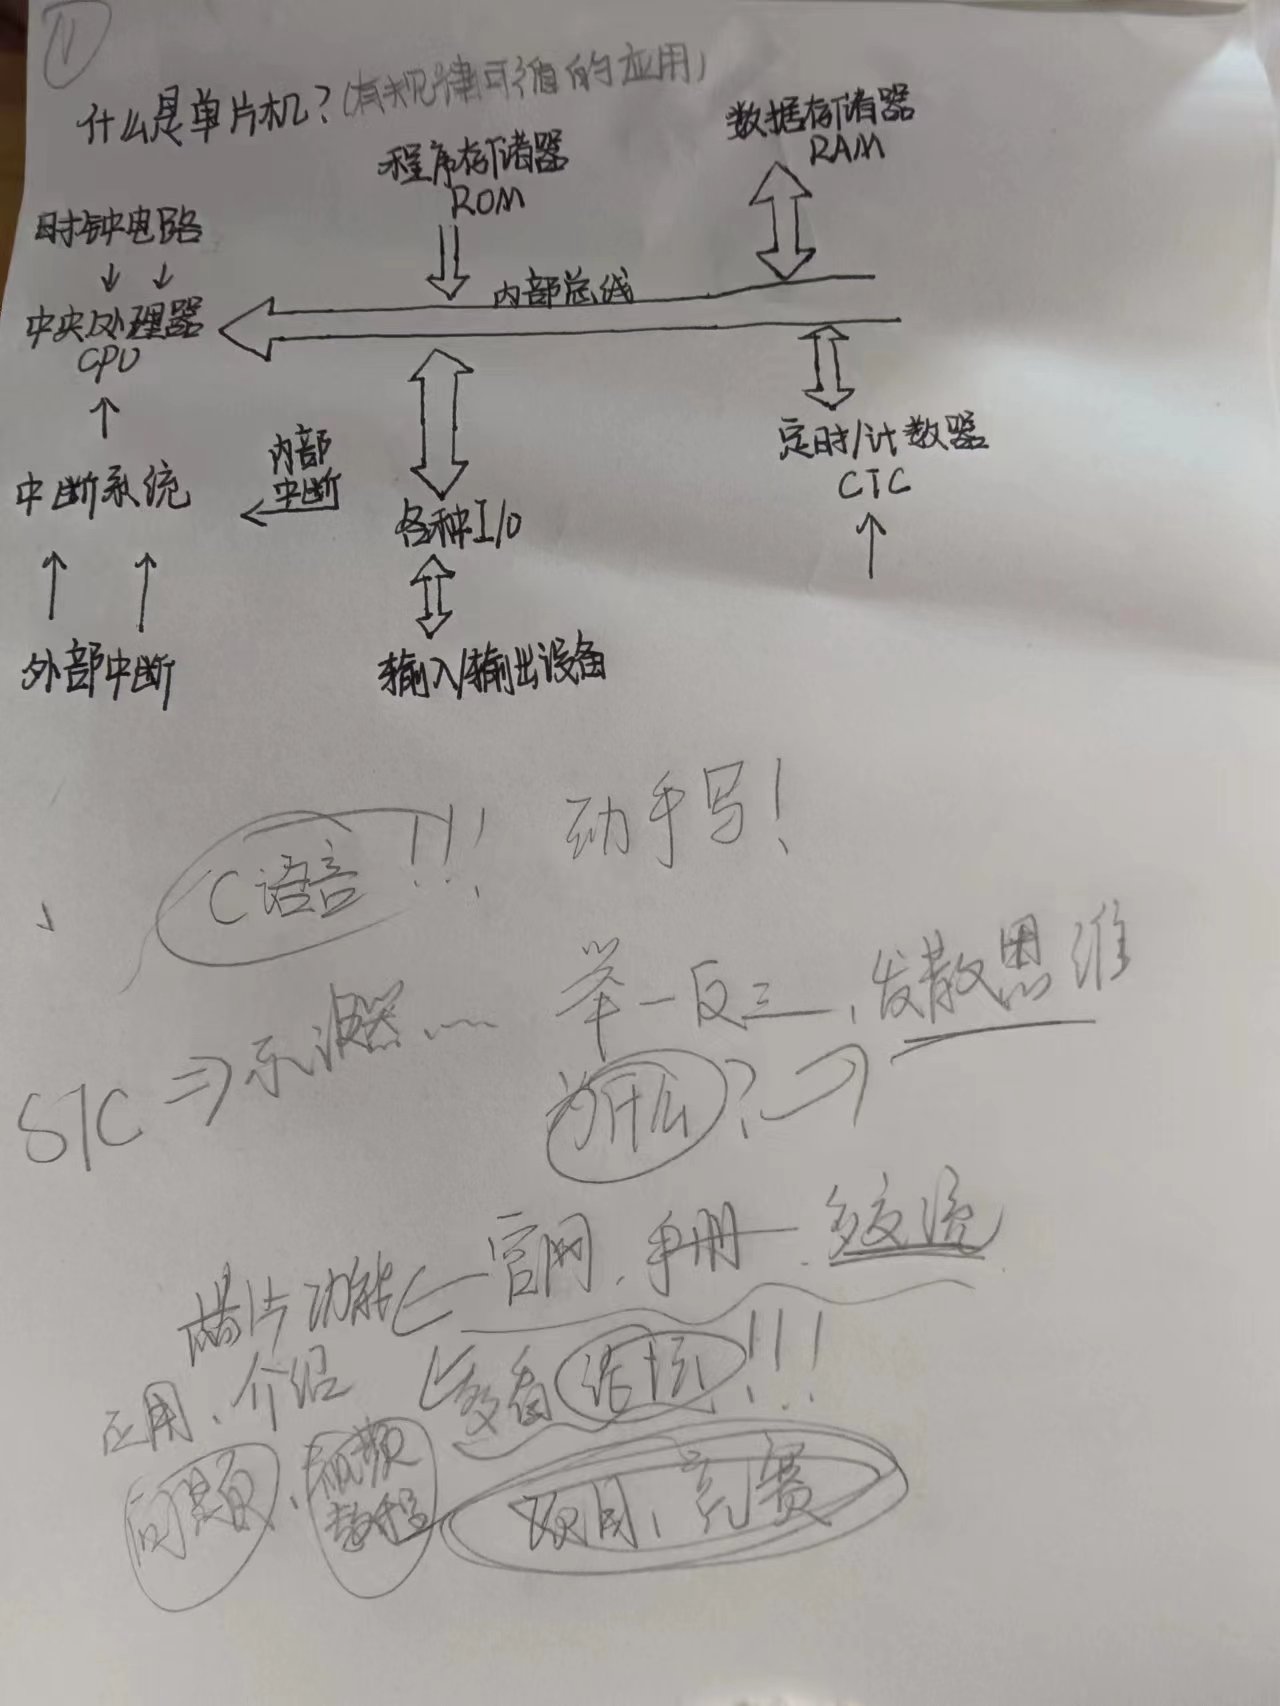 1
什么是单片机?(有规律可循的应用)
数据存储器
RAM
程序存储器
ROM
时钟电路
内部总线
中央处理器
CPU
定时/计数器
CTC
内部
中断
中断系统
各种I/O
外部中断
输入/输出设备
C语言!!! 动手写!
举一反三,发散思维
STC⇒示波器……
为什么?
官网、手册、多交流
芯片功能
应用、介绍
多看论坛!!!
问题、视频
教程
项目、竞赛